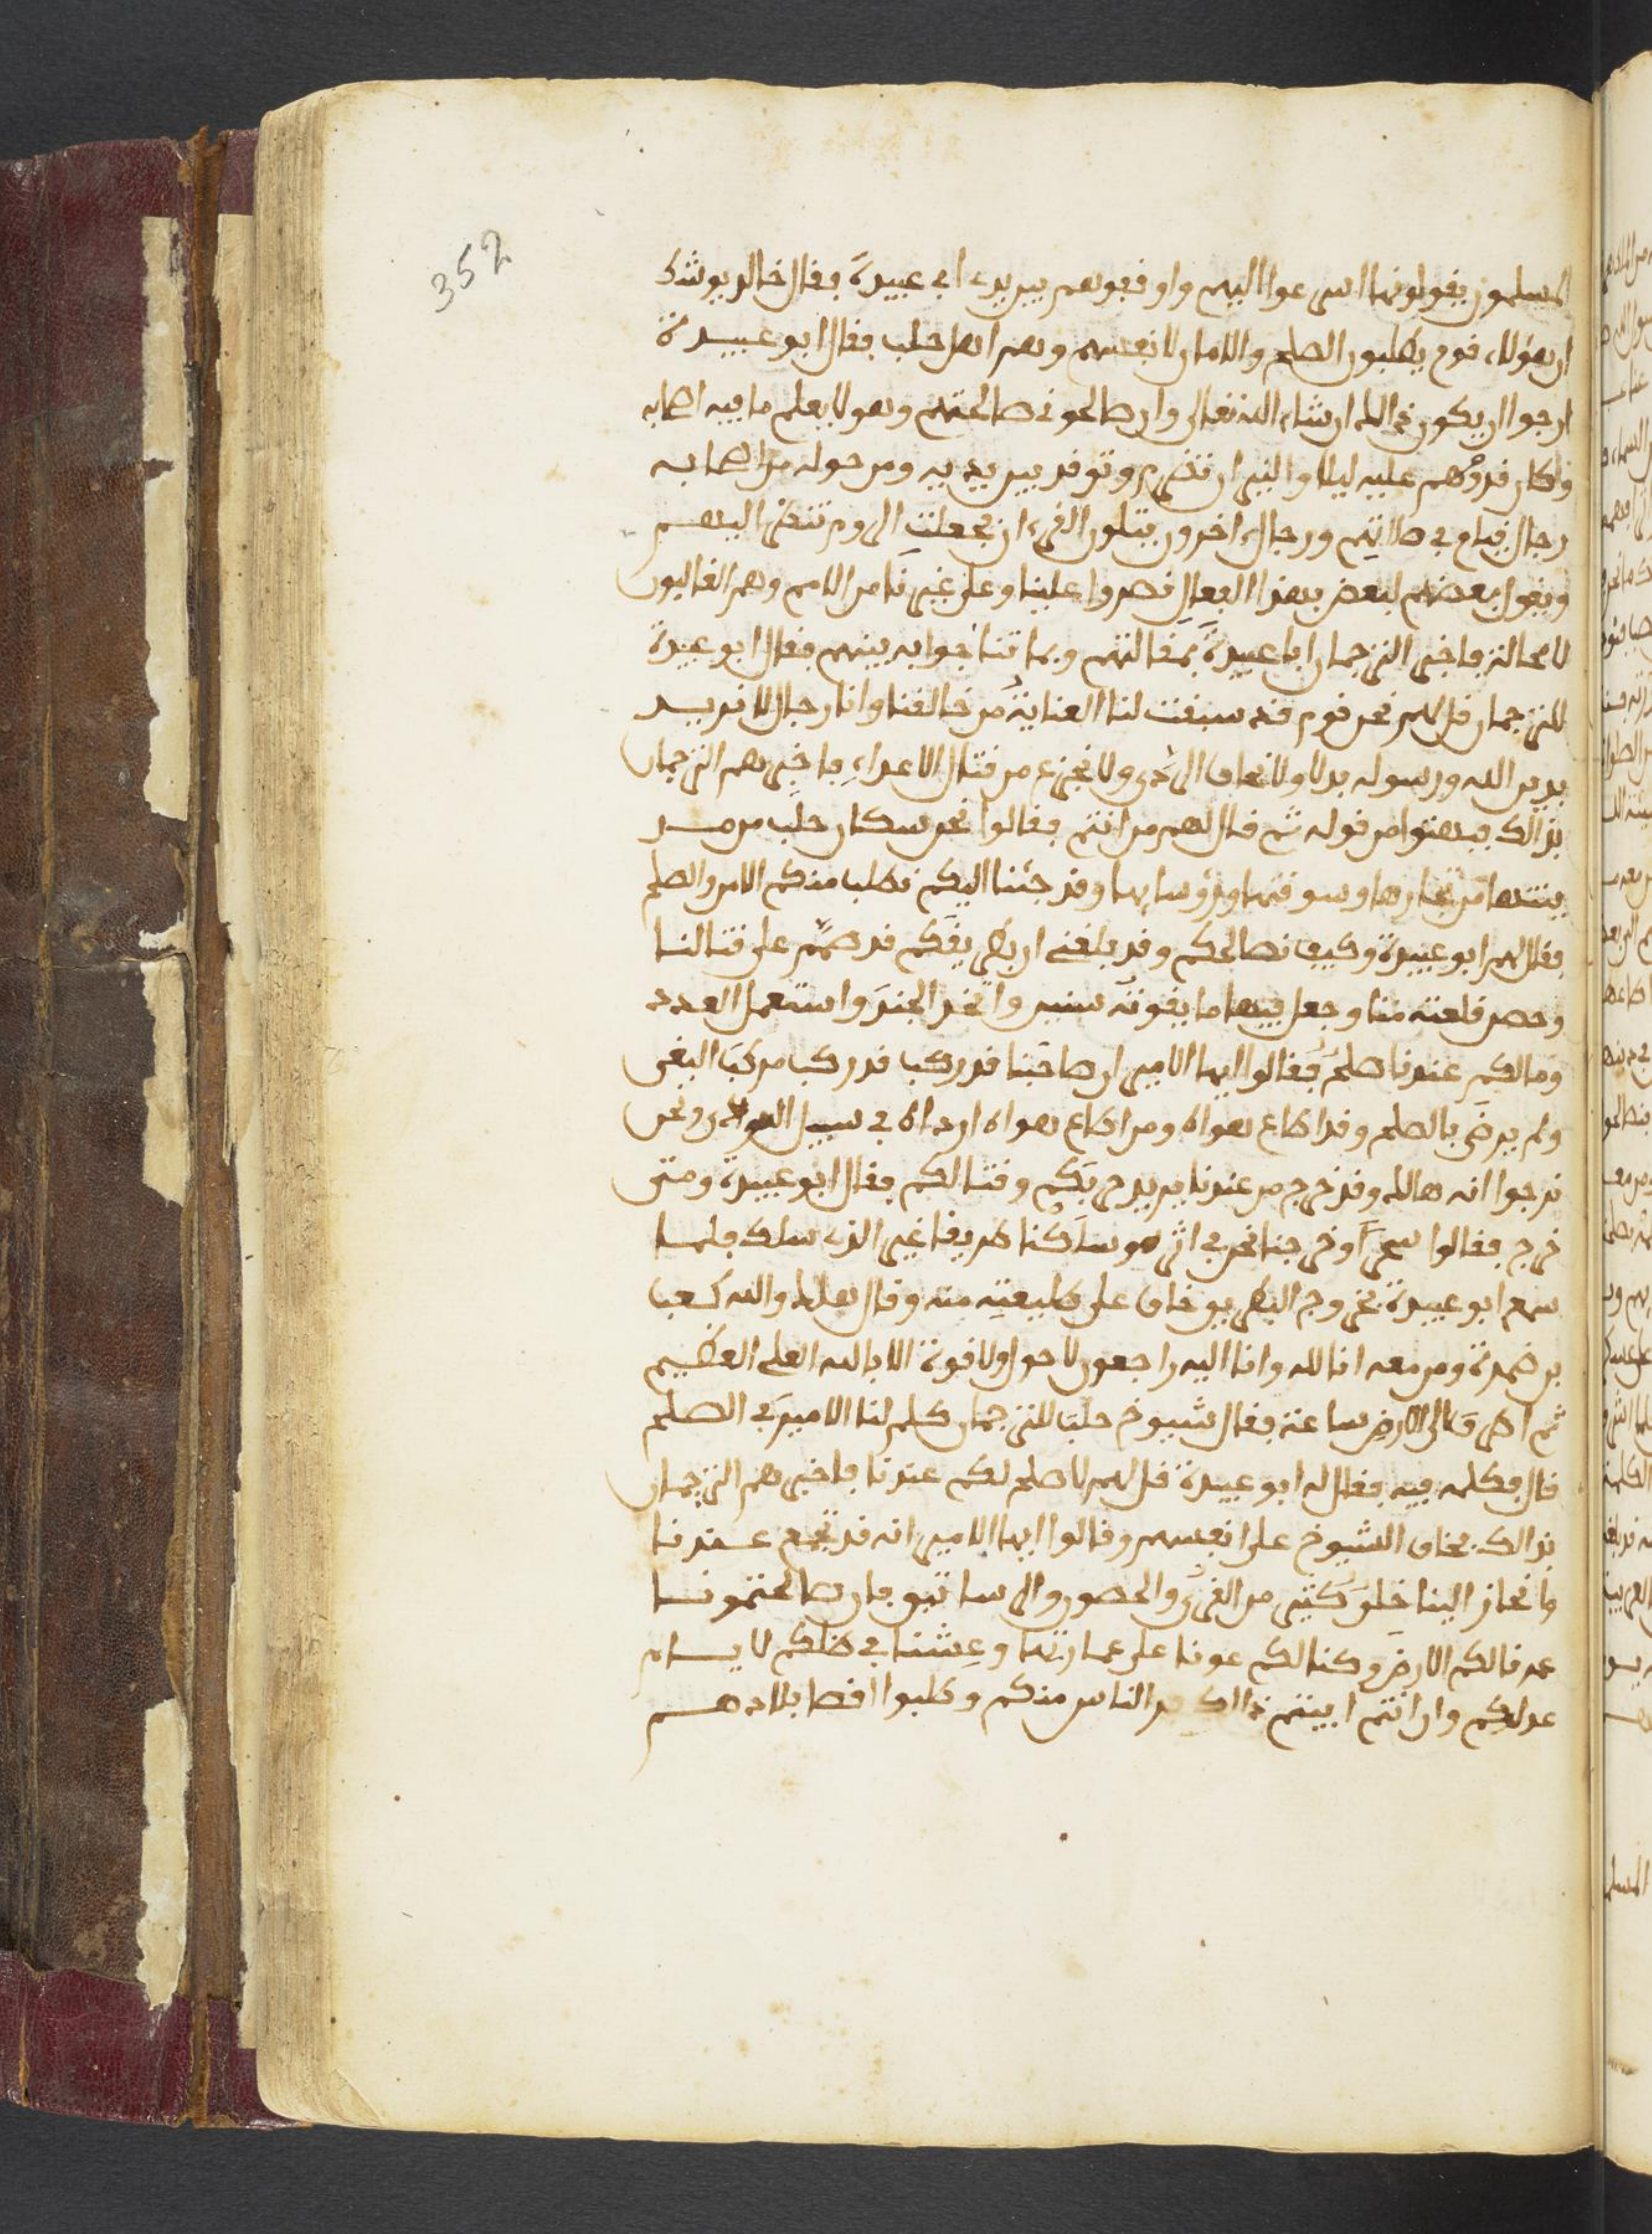 352
المسلمون يقولونها اسرعوا اليهم واوقفوهم بين يدي ابي عبيدة فقال خالد يوشك
ان هؤلاء قوم يطلبون الصلح والامان لانفسهم وهم اهل حلب فقال ابو عبيدة
ارجوا ان يكون ذلك ان شاء الله تعالى وان صالحوني صالحتهم وهو لا يعلم ما فيه اصحابه
وكان قدومهم عليه ليلا والنيران تضرم وتوقد بين يديه ومن حوله من اصحابه
رجال قيام في صلاتهم ورجال اخرون يتلون القرءان فجعلت الروم تنظر اليهم
ويقول بعضهم لبعض بهذا الفعال نصروا علينا وعلى غيرنا من الامم وهم الغالبون
لا محالة فاخبر الترجمان ابا عبيدة بمقالتهم وبما تناجوا به بينهم فقال ابو عبيدة
للترجمان قل لهم نحن قوم قد سبقت لنا العناية من خالقنا وانا رجال لا نريد
بدين الله ورسوله بدلا ولا نخاف الردى ولا نجزع من قتال الاعداء فاخبرهم الترجمان
بذالك فبهتوا من قوله ثم قال لهم من انتم فقالوا نحن سكان حلب من
تجارها وسوقتها ورؤسايها وقد جئنا اليكم نطلب منكم الامن والصلح
فقال لهم ابو عبيدة وكيف نصالحكم وقد بلغني ان بطريقكم قد صمم على قتالنا
وحصن قلعته منا وجعل فيها ما يقوته سنين واتخذ الجند واستعمل العدد
وما لكم عندنا صلح فقالوا ايها الامير ان صاحبنا قد ركب قد ركب مركب البغي
ولم يرض بالصلح وقد اطاع هواه ومن اطاع هواه ارداه في سبيل الردى ونحن
نرجوا انه هالك وقد خرج من عندنا يريد حربكم وقتالكم فقال ابو عبيدة ومتى
خرج فقالوا سحرا وخرجنا نحن في اثره وسلكنا طريقا غير الذي سلك فلما
سمع ابو عبيدة بخروج البطريق خاف على طليعته منه وقال هلك والله كعب
بن ضمرة ومن معه انا لله وانا اليه راجعون لا حول ولا قوة الا بالله العلي العظيم
ثم اطرق الى الارض ساعة فقال شيوخ حلب للترجمان كلم لنا الامير في الصلح
قال فكلمه فيه فقال له ابو عبيدة قل لهم لا صلح لكم عندنا فاخبرهم الترجمان
بذالك فخاف الشيوخ على انفسهم وقالوا ايها الامير انه قد تجمع عندنا
وانحاز الينا خلق كثير من القرى والحصون والرساتيق فان صالحتمونا
عمرنا لكم الارض وكنا لكم عونا على عمارتها وعشنا في ظلكم لا
عدلكم وان انتم ابيتم ذالك الناس منكم وطلبوا اقصا بلادهم